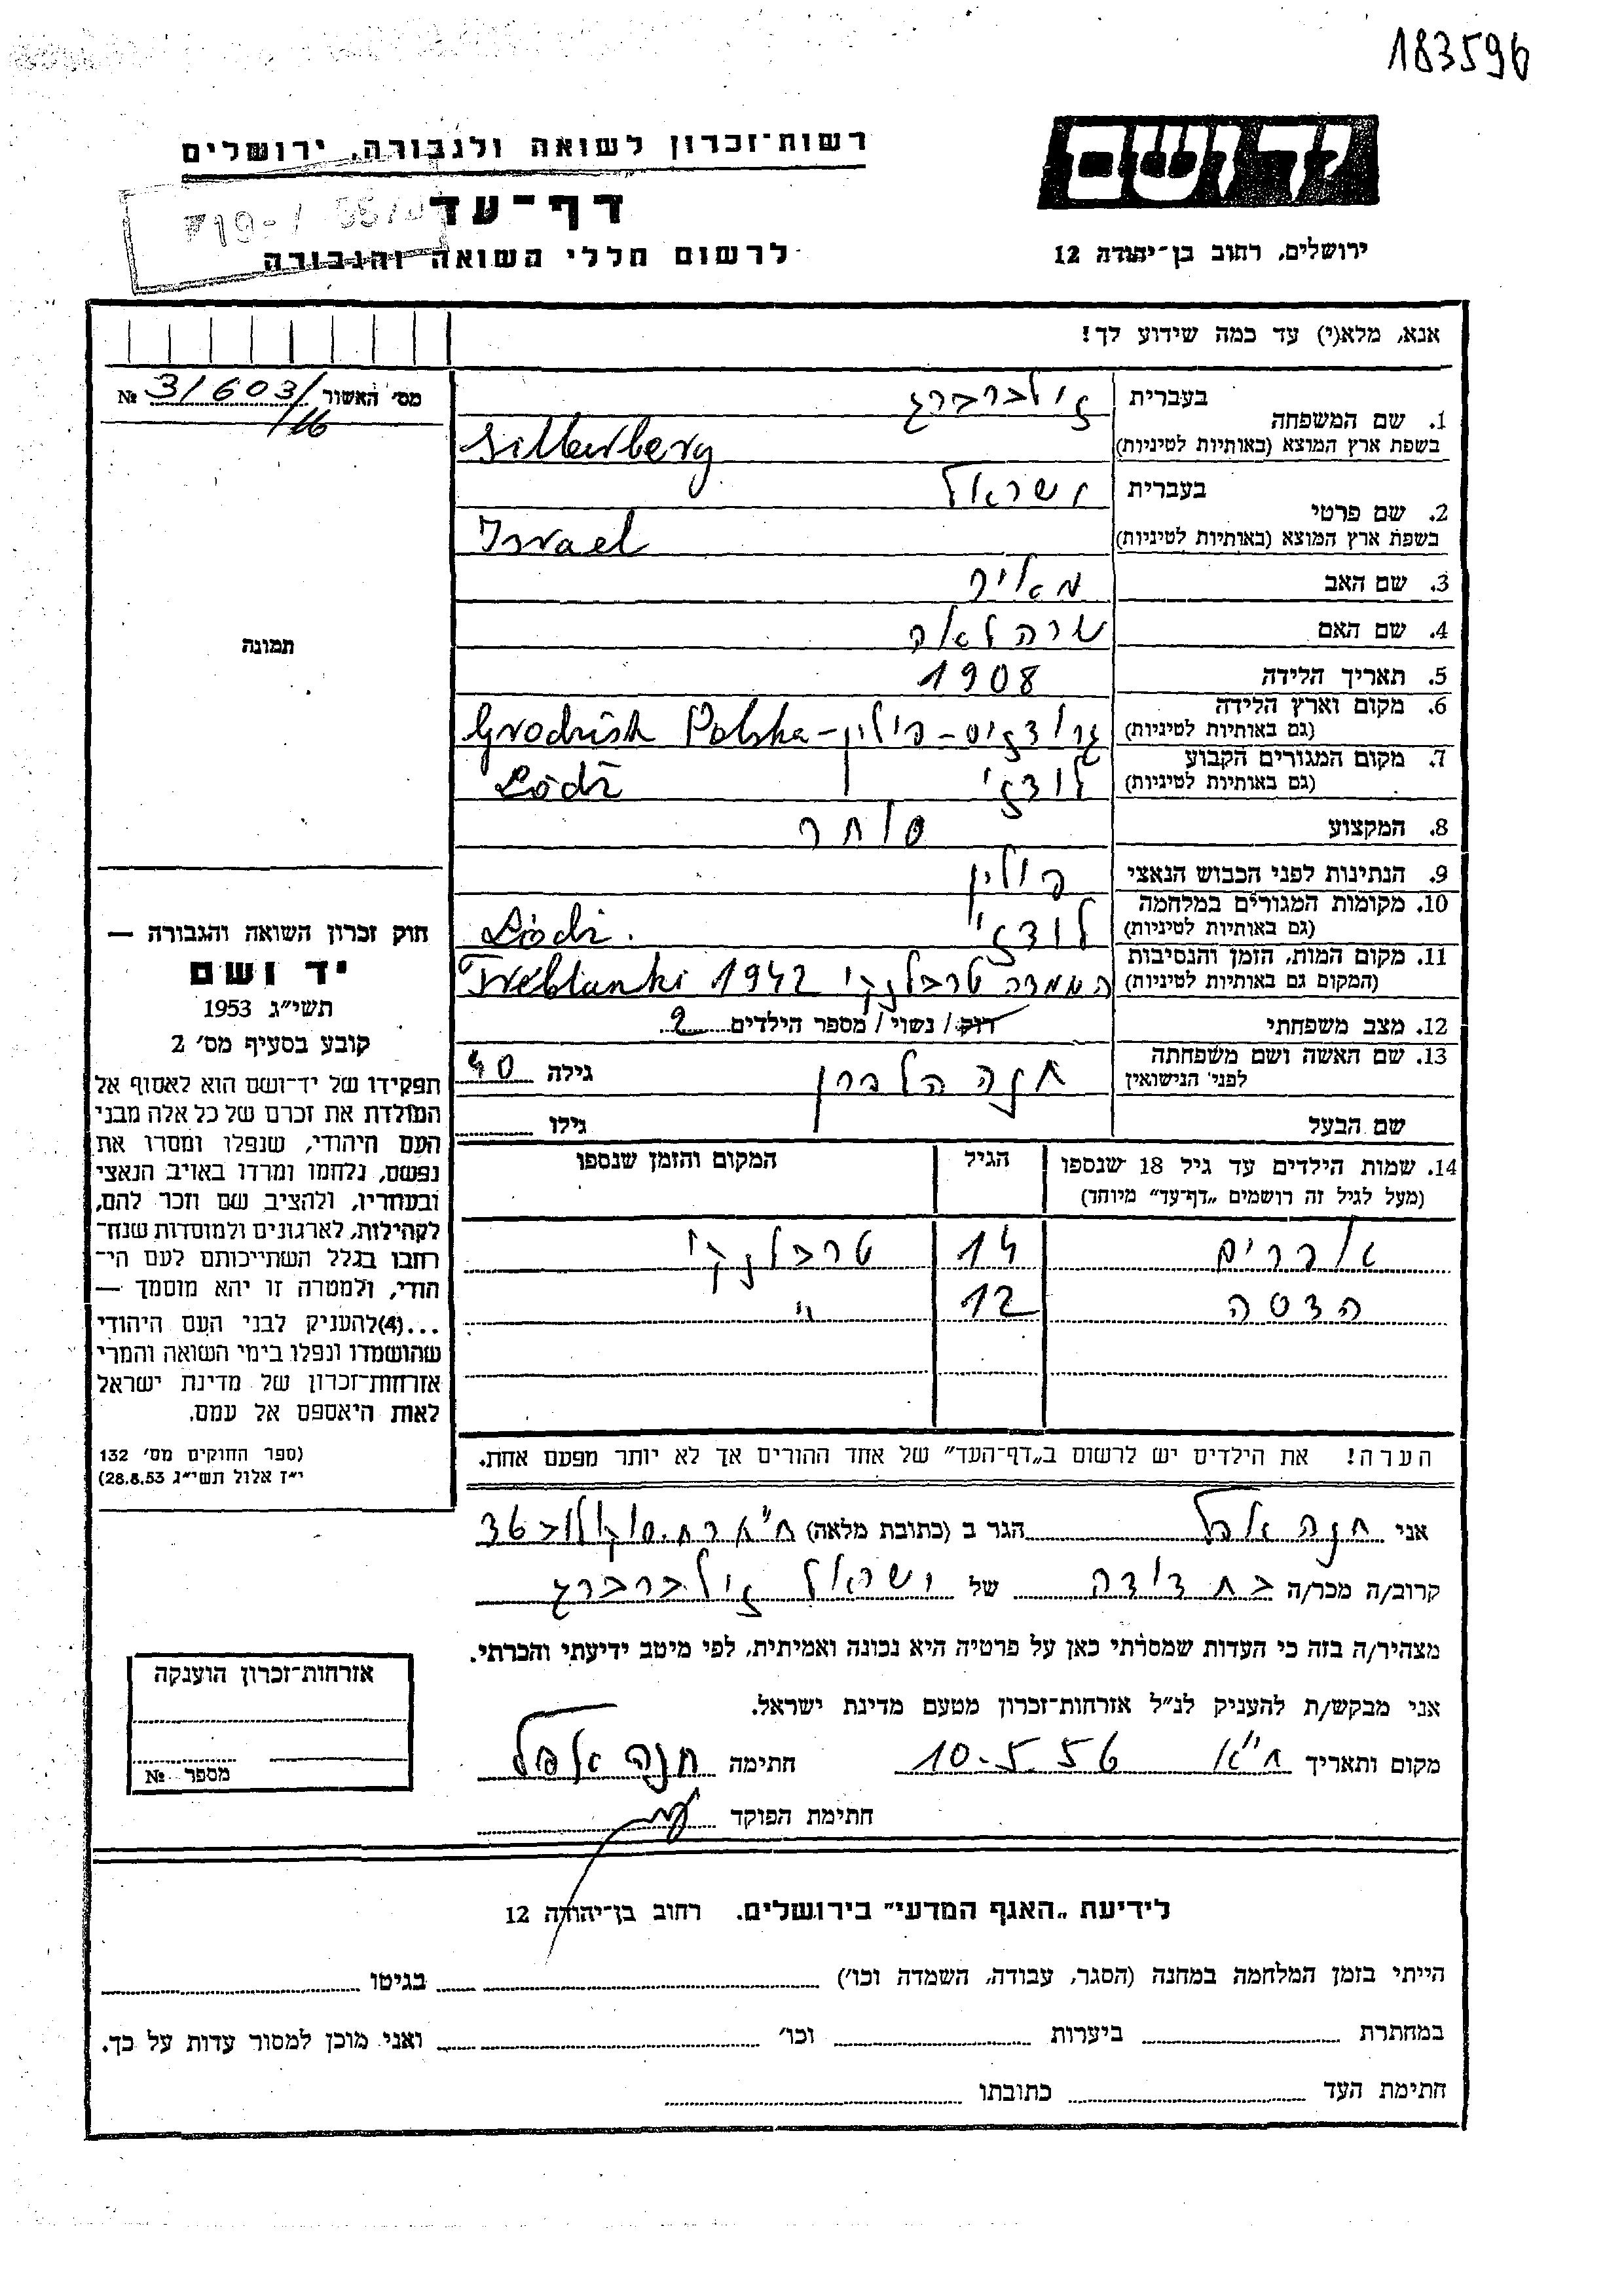 183596
יד ושם
ירושלים, רחוב בן־יהודה 12
רשות־זכרון לשואה ולגבורה, ירושלים
דף־עד
לרשום חללי השואה והגבורה
אנא, מלא(י) עד כמה שידוע לך!
מס' האשור 31603/ №
/16
תמונה
1. שם המשפחה
בעברית זילברברג
בשפת ארץ המוצא (באותיות לטיניות) Silberberg
2. שם פרטי
בעברית ישראל
בשפת ארץ המוצא (באותיות לטיניות) Israel
3. שם האב מאיר
4. שם האם שרה לאה
5. תאריך הלידה 1908
6. מקום וארץ הלידה
(גם באותיות לטיניות) גרודזיס - פולין - Grodzisk Polska
7. מקום המגורים הקבוע
(גם באותיות לטיניות) לודז' Łódź
8. המקצוע סוחר
9. הנתינות לפני הכבוש הנאצי פולין
10. מקומות המגורים במלחמה
(גם באותיות לטיניות) לודז' Łódź.
11. מקום המות, הזמן והנסיבות
(המקום גם באותיות לטיניות) השמדה טרבלנקי 1942 Treblanki
12. מצב משפחתי רוק / נשוי / מספר הילדים 2
13. שם האשה ושם משפחתה
לפני הנישואין חנה הלברן גילה 40
שם הבעל גילו
14. שמות הילדים עד גיל 18 שנספו הגיל המקום והזמן שנספו
(מעל לגיל זה רושמים „דף־עד" מיוחד)
אברים 14 טרבלנקי
הדסה 12 "
הערה! את הילדים יש לרשום ב„דף־העד" של אחד ההורים אך לא יותר מפעם אחת.
חוק זכרון השואה והגבורה —
יד ושם
תשי"ג 1953
קובע בסעיף מס' 2
תפקידו של יד־ושם הוא לאסוף אל
המולדת את זכרם של כל אלה מבני
העם היהודי, שנפלו ומסרו את
נפשם, נלחמו ומרדו באויב הנאצי
ובעוזריו, ולהציב שם וזכר להם,
לקהילות, לארגונים ולמוסדות שנח־
רחבו בגלל השתייכותם לעם הי־
הודי, ולמטרה זו יהא מוסמך —
...(4)להעניק לבני העם היהודי
שהושמדו ונפלו בימי השואה והמרי
אזרחות־זכרון של מדינת ישראל
לאות היאספם אל עמם.
(ספר החוקים מס' 132
י"ז אלול תשי"ג 28.8.53)
אני חנה אפל הגר ב (כתובת מלאה) ת"א רח. סוקולוב 36
קרוב/ה מכר/ה בת דודה של ישראל זילברברג
מצהיר/ה בזה כי העדות שמסרתי כאן על פרטיה היא נכונה ואמיתית, לפי מיטב ידיעתי והכרתי.
אני מבקש/ת להעניק לנ"ל אזרחות־זכרון מטעם מדינת ישראל.
מקום ותאריך ת"א 10.5.56 חתימה חנה אפל
חתימת הפוקד
אזרחות־זכרון הוענקה
מספר №
לידיעת „האגף המדעי" בירושלים. רחוב בן־יהודה 12
הייתי בזמן המלחמה במחנה (הסגר, עבודה, השמדה וכו') בגיטו
במחתרת ביערות וכו' ואני מוכן למסור עדות על כך.
חתימת העד כתובתו